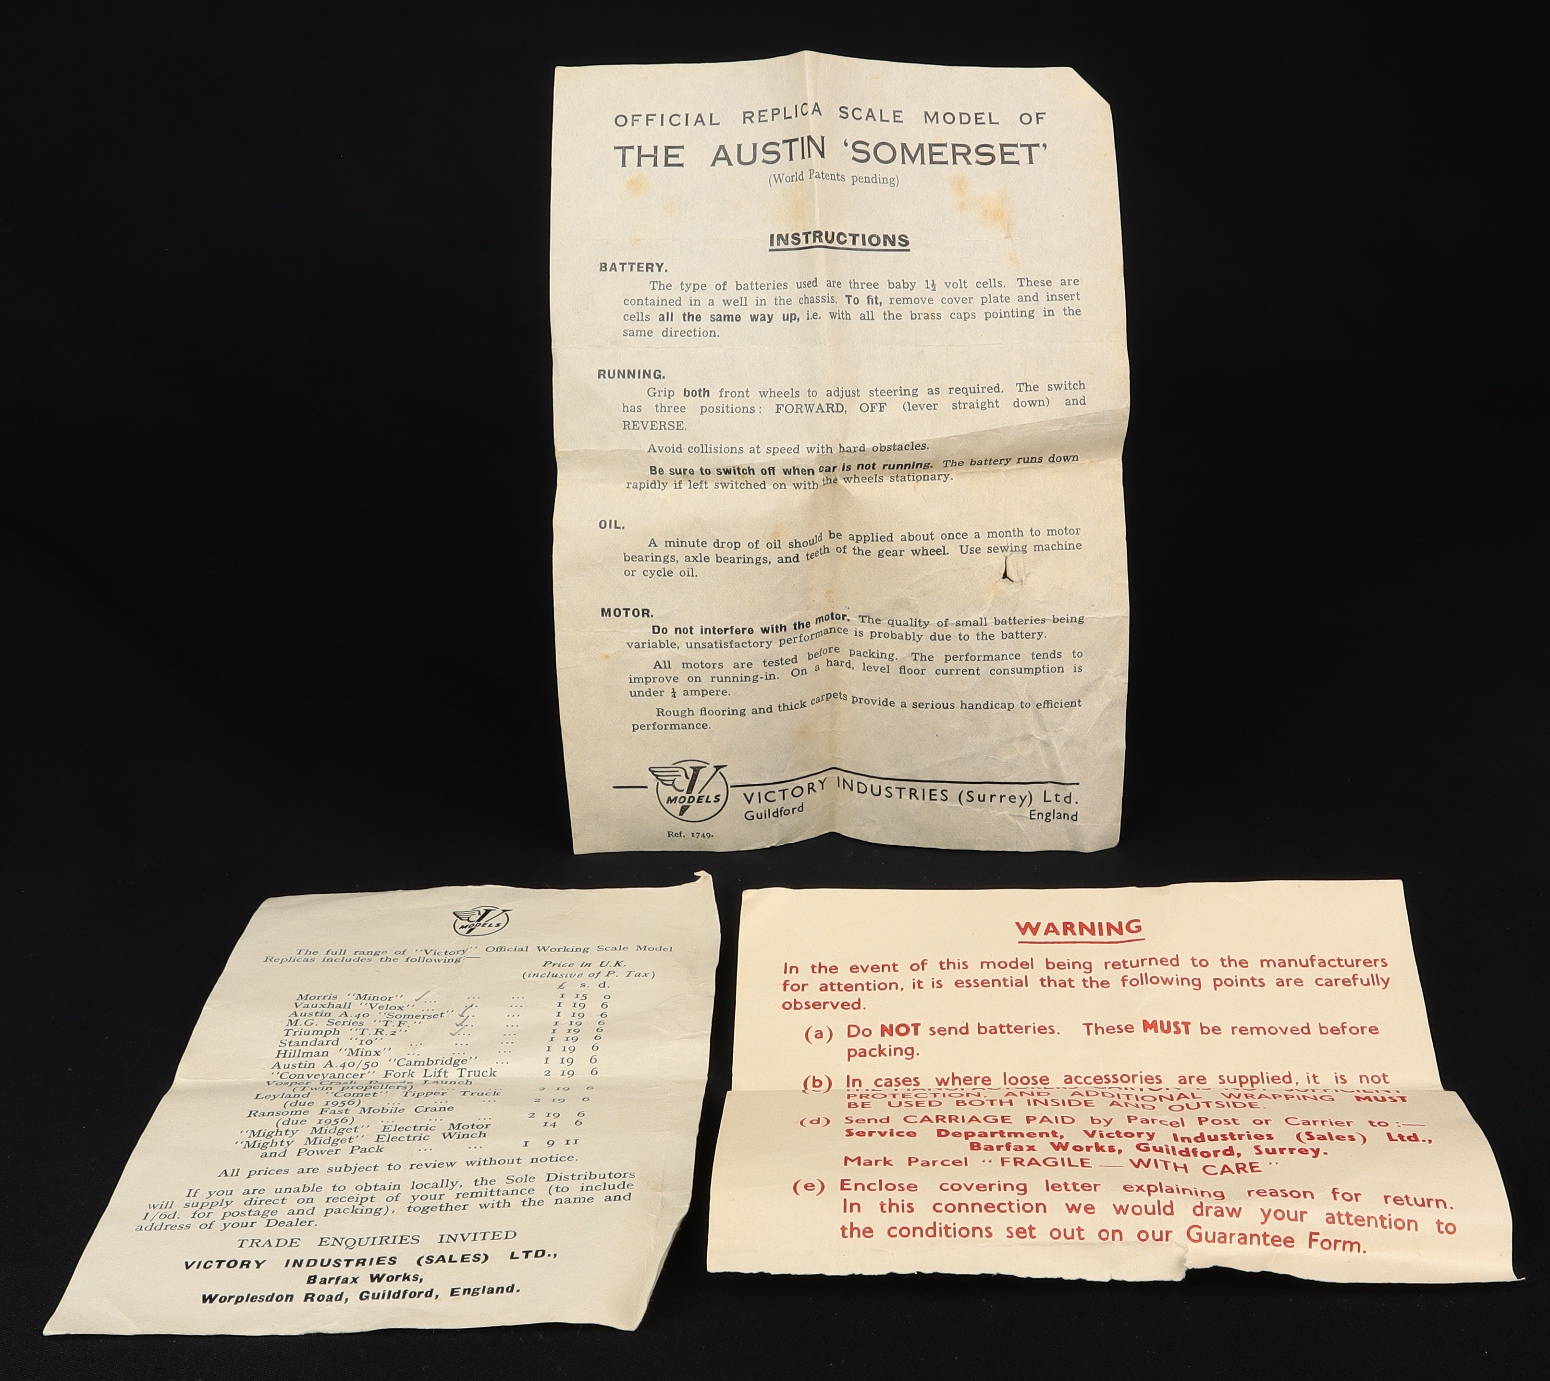 OFFICIAL REPLICA SCALE MODEL OF
THE AUSTIN ‘SOMERSET’
(World Patents pending)
INSTRUCTIONS
BATTERY.
The type of batteries used are three baby 1½ volt cells. These are
contained in a well in the chassis. To fit, remove cover plate and insert
cells all the same way up, i.e. with all the brass caps pointing in the
same direction.
RUNNING.
Grip both front wheels to adjust steering as required. The switch
has three positions: FORWARD, OFF (lever straight down) and
REVERSE.
Avoid collisions at speed with hard obstacles.
Be sure to switch off when car is not running. The battery runs down
rapidly if left switched on with the wheels stationary.
OIL.
A minute drop of oil should be applied about once a month to motor
bearings, axle bearings, and teeth of the gear wheel. Use sewing machine
or cycle oil.
MOTOR.
Do not interfere with the motor. The quality of small batteries being
variable, unsatisfactory performance is probably due to the battery.
All motors are tested before packing. The performance tends to
improve on running-in. On a hard, level floor current consumption is
under ampere.
Rough flooring and thick carpets provide a serious handicap to efficient
performance.
V MODELS
VICTORY INDUSTRIES (Surrey) Ltd.
Guildford England
Ref. 1749.
V MODELS
The full range of "Victory" Official Working Scale Model
Replicas includes the following:—
Price in U.K.
(inclusive of P. Tax)
£ s. d.
Morris "Minor" ... ... ... 1 15 0
Vauxhall "Velox" ... ... ... 1 19 6
Austin A.40 "Somerset" ... ... 1 19 6
M.G. Series "T.F." ... ... 1 19 6
Triumph "T.R.2" ... ... ... 1 19 6
Standard "10" ... ... ... 1 19 6
Hillman "Minx" ... ... ... 1 19 6
Austin A.40/50 "Cambridge" ... 1 19 6
"Conveyancer" Fork Lift Truck 2 19 6
Vosper Crash Launch
(Twin propellers) ... ... 2 19 6
Leyland "Comet" Tipper Truck
(due 1956) ... ... ... 2 19 6
Ransome Fast Mobile Crane
(due 1956) ... ... ... 2 19 6
"Mighty Midget" Electric Motor 14 6
"Mighty Midget" Electric Winch
and Power Pack ... ... 1 9 11
All prices are subject to review without notice.
If you are unable to obtain locally, the Sole Distributors
will supply direct on receipt of your remittance (to include
1/6d. for postage and packing), together with the name and
address of your Dealer.
TRADE ENQUIRIES INVITED
VICTORY INDUSTRIES (SALES) LTD.,
Barfax Works,
Worplesdon Road, Guildford, England.
WARNING
In the event of this model being returned to the manufacturers
for attention, it is essential that the following points are carefully
observed.
(a) Do NOT send batteries. These MUST be removed before
packing.
(b) In cases where loose accessories are supplied, it is not
PROTECTION, AND ADDITIONAL WRAPPING MUST
BE USED BOTH INSIDE AND OUTSIDE.
(d) Send CARRIAGE PAID by Parcel Post or Carrier to:—
Service Department, Victory Industries (Sales) Ltd.,
Barfax Works, Guildford, Surrey.
Mark Parcel "FRAGILE — WITH CARE"
(e) Enclose covering letter explaining reason for return.
In this connection we would draw your attention to
the conditions set out on our Guarantee Form.